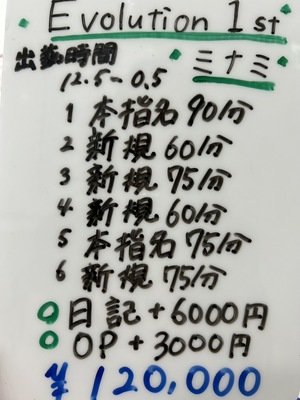 Evolution 1st
出勤時間
ミナミ
12.5-0.5
1 本指名 90/分
2 新規 60/分
3 新規 75/分
4 新規 60/分
5 本指名 75/分
6 新規 75/分
○日記+6000円
○OP+3000円
¥120,000